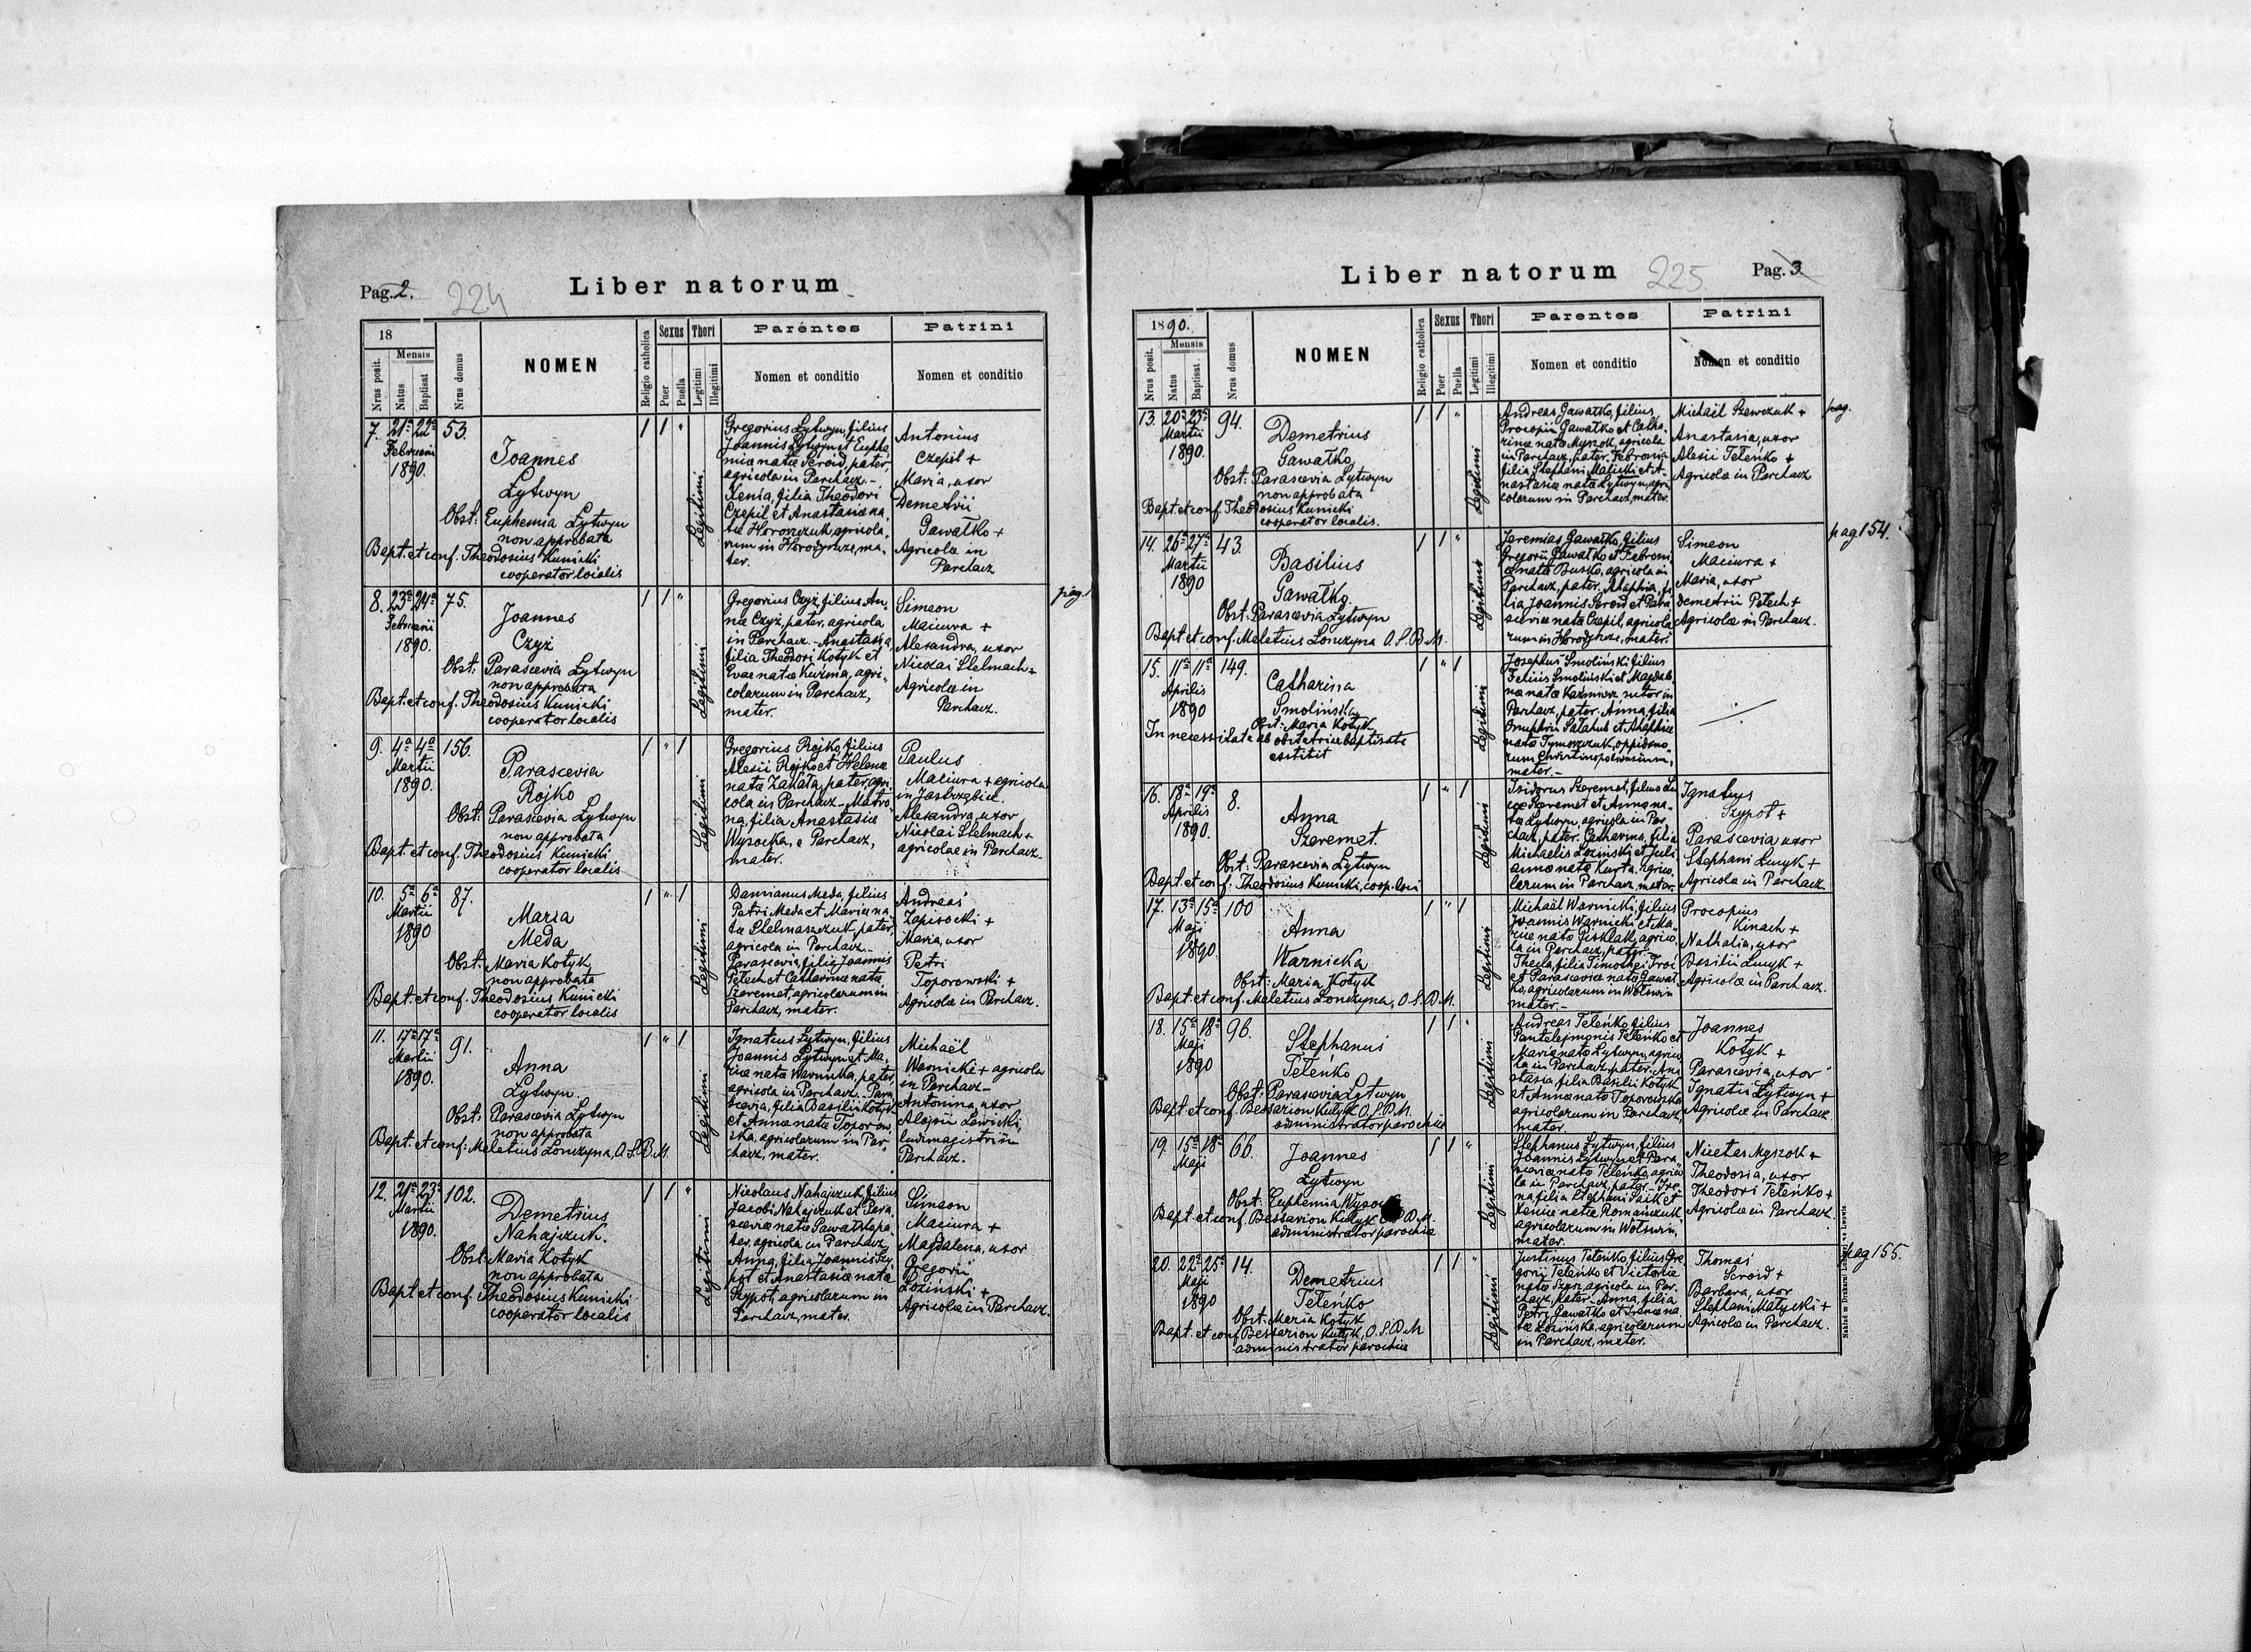 Pag. 2.
224
Liber natorum
18
Nrus posit.
Mensis
Natus
Baptisat
Nrus domus
NOMEN
Religio catholica
Sexus
Puer
Puella
Thori
Legitimi
Illegitimi
Parentes
Nomen et conditio
Patrini
Nomen et conditio
7. 21a 22a 53.
Februarii
1890.
Joannes
Łytwyn
Obst: Euphemia Łytwyn
non approbata
Bapt. et conf. Theodosius Kunicki
cooperator localis
Legitimi
Gregorius Łytwyn, filius
Joannis Łytwyn et Euphe-
miæ natæ Seroid, pater,
agricola in Parchacz.-
Xenia, filia Theodori
Czepil et Anastasiæ na-
tæ Horoszczuk, agricola-
rum in Horodyszcze, ma-
ter.
Antonius
Czepil +
Maria, uxor
Demetrii
Gawałko +
Agricolæ in
Parchacz
8. 23a 24a 75.
Februarii
1890.
Joannes
Czyż
Obst: Parascevia Łytwyn
non approbata
Bapt. et conf. Theodosius Kunicki
cooperator localis
Legitimi
Gregorius Czyż, filius An-
næ Czyż, pater, agricola
in Parchacz - Anastasia,
filia Theodori Kotyk et
Evæ natæ Kuźma, agri-
colarum in Parchacz,
mater.
Simeon
Maciura +
Alexandra, uxor
Nicolai Stelmach +
Agricolæ in
Parchacz.
pag.
9. 4a 4a 156.
Martii
1890.
Parascevia
Rojko
Obst: Parascevia Łytwyn
non approbata
Bapt. et conf. Theodosius Kunicki
cooperator localis
Legitimi
Gregorius Rojko, filius
Alexii Rojko et Helenæ
natæ Zakała, pater, agri-
cola in Parchacz - Matro-
na, filia Anastasiæ
Wysocka, e Parchacz,
mater.
Paulus
Maciura + agricola
in Jastrzębica.
Alexandra, uxor
Nicolai Stelmach +
agricolae in Parchacz.
10. 5a 6a 87.
Martii
1890
Maria
Meda
Obst: Maria Kotyk
non approbata
Bapt. et conf. Theodosius Kunicki
cooperator localis
Legitimi
Damianus Meda, filius
Petri Meda et Mariæ na-
tæ Stelmaszczuk, pater,
agricola in Parchacz.-
Parascevia, filia Joannis
Pelech et Catharinæ natæ
Szeremet, agricolarum in
Parchacz, mater.
Andreas
Zapisocki +
Maria, uxor
Petri
Toporowski +
Agricolæ in Parchacz.
11. 17a 17a 91.
Martii
1890.
Anna
Łytwyn
Obst: Parascevia Łytwyn
non approbata
Bapt. et conf: Meletius Lonczyna, O.S.B.M.
Legitimi
Ignatius Łytwyn, filius
Joannis Łytwyn et Ma-
riæ natæ Warnicka, pater,
agricola in Parchacz.- Para-
scevia, filia Basilii Kotyk
et Annæ natæ Toporow-
ska, agricolarum in Par-
chacz, mater.
Michaël
Warnicki + agricola
in Parchacz -
Antonina, uxor
Aloysii Lewicki,
ludimagistri in
Parchacz.
12. 21a 23a 102.
Martii
1890.
Demetrius
Nahajczuk.
Obst: Maria Kotyk
non approbata
Bapt. et conf. Theodosius Kunicki
cooperator localis
Legitimi
Nicolaus Nahajczuk, filius
Jacobi Nahajczuk et Para-
sceviæ natæ Gawałko, pa-
ter, agricola in Parchacz.
Anna, filia Joannis Szy-
pot et Anastasiæ natæ
Szypot, agricolarum in
Parchacz, mater.
Simeon
Maciura +
Magdalena, uxor
Gregorii
Łoziński +
Agricolæ in Parchacz.
Liber natorum
225
Pag. 3
1890.
Nrus posit.
Mensis
Natus
Baptisat.
Nrus domus
NOMEN
Religio catholica
Sexus
Puer
Puella
Thori
Legitimi
Illegitimi
Parentes
Nomen et conditio
Patrini
Nomen et conditio
13. 20a 23a 94.
Martii
1890.
Demetrius
Gawałko
Obst: Parascevia Łytwyn
non approbata
Bapt. et conf. Theodosius Kunicki
cooperator localis.
Legitimi
Andreas Gawałko, filius
Procopii Gawałko et Catha-
rinæ natæ Myszok, agricola
in Parchacz, pater. Febronia
filia Stephani Matycki et A-
nastasiæ natæ Łytwyn, agri-
colarum in Parchacz, mater.
Michaël Szewczuk +
Anastasia, uxor
Alexii Teleńko +
Agricolæ in Parchacz
pag.
14. 26a 27a 43.
Martii
1890
Basilius
Gawałko
Obst: Parascevia Łytwyn
Bapt. et conf. Meletius Lonczyna O.S.B.M.
Legitimi
Jeremias Gawałko, filius
Gregorii Gawałko et Febroni-
æ natæ Busko, agricola in
Parchacz, pater. Ahaphia, fi-
lia Joannis Seroid et Para-
sceviæ natæ Czepil, agricola-
rum in Horodyszcze, mater.
Simeon
Maciura +
Maria, uxor
Demetrii Pelech +
Agricolæ in Parchacz.
pag 154.
15. 11a 11a 149.
Aprilis
1890
Catharina
Smolińska
Obst: Maria Kotyk
In necessitate ab obstetrice baptisata
exstitit
Legitimi
Josephus Smoliński filius
Felicis Smoliński et Magdale-
næ natæ Kazmierz, sutor in
Parchacz, pater. Anna, filia
Onuphrii Sałahub et Ahaphiæ
natæ Tymoszczuk, oppidano-
rum Christinopoliensium,
mater.-
16. 18a 19a 8.
Aprilis
1890.
Anna
Szeremet.
Obst: Parascevia Łytwyn
Bapt. et conf. Theodosius Kunicki, coop. loci
Legitimi
Isidorus Szeremet, filius Lu-
cæ Szeremet et Annæ na-
tæ Łytwyn, agricola in Par-
chacz, pater. Catharina, filia
Michaëlis Łoziński et Juli-
annæ natæ Kurta, agrico-
larum in Parchacz, mater.
Ignatius
Szypot +
Parascevia uxor
Stephani Lucyk +
Agricolæ in Parchacz
17. 13a 15a 100
Maji
1890.
Anna
Warnicka
Obst: Maria Kotyk
Bapt. et conf. Meletius Lonczyna, O.S.B.M.
Legitimi
Michaël Warnicki, filius
Joannis Warnicki et Ma-
riæ natæ Pisklak, agrico-
la in Parchacz, pater.-
Thecla, filia Timothei Troć
et Parasceviæ natæ Gawał-
ko, agricolarum in Wolswin
mater.-
Procopius
Kinach +
Nathalia, uxor
Basilii Lucyk +
Agricolæ in Parchacz.
18. 15a 18a 96.
Maji
1890
Stephanus
Teleńko
Obst: Parascevia Łytwyn
Bapt. et conf. Bessarion Kułyk O.S.B.M.
administrator parochiæ
Legitimi
Andreas Teleńko, filius
Pantelejmonis Teleńko et
Mariæ natæ Łytwyn, agrico-
la in Parchacz, pater. Ana-
stasia, filia Basilii Kotyk
et Annæ natæ Toporowska,
agricolarum in Parchacz,
mater.
Joannes
Kotyk +
Parascevia, uxor
Ignatii Łytwyn +
Agricolæ in Parchacz.
19. 15a 18a 66.
Maji
Joannes
Łytwyn
Obst: Euphemia
Bapt. et conf. Bessarion Kułyk O.S.B.M.
administrator parochiæ
Legitimi
Stephanus Łytwyn, filius
Joannis Łytwyn et Para-
sceviæ natæ Teleńko, agrico-
la in Parchacz, pater.- Ire-
na filia Stephani Saik et
Xeniæ natæ Romańczuk,
agricolarum in Wolswin,
mater.
Nicetas Myszok +
Theodosia, uxor
Theodori Teleńko +
Agricolæ in Parchacz
20. 22a 25a 14.
Maji
1890
Demetrius
Teleńko
Obst: Maria Kotyk
Bapt. et conf. Bessarion Kułyk, O.S.B.M
administrator parochiæ
Legitimi
Justinus Teleńko, filius Gre-
gorii Teleńko et Victoriæ
natæ Szysz, agricola in Par-
chacz, pater - Anna, filia
Petri Gawałko et Irenæ na-
tæ Łozińska, agricolarum
in Parchacz, mater.
Thomas
Seroid +
Barbara, uxor
Stephani Matycki +
Agricolæ in Parchacz.
pag 155.